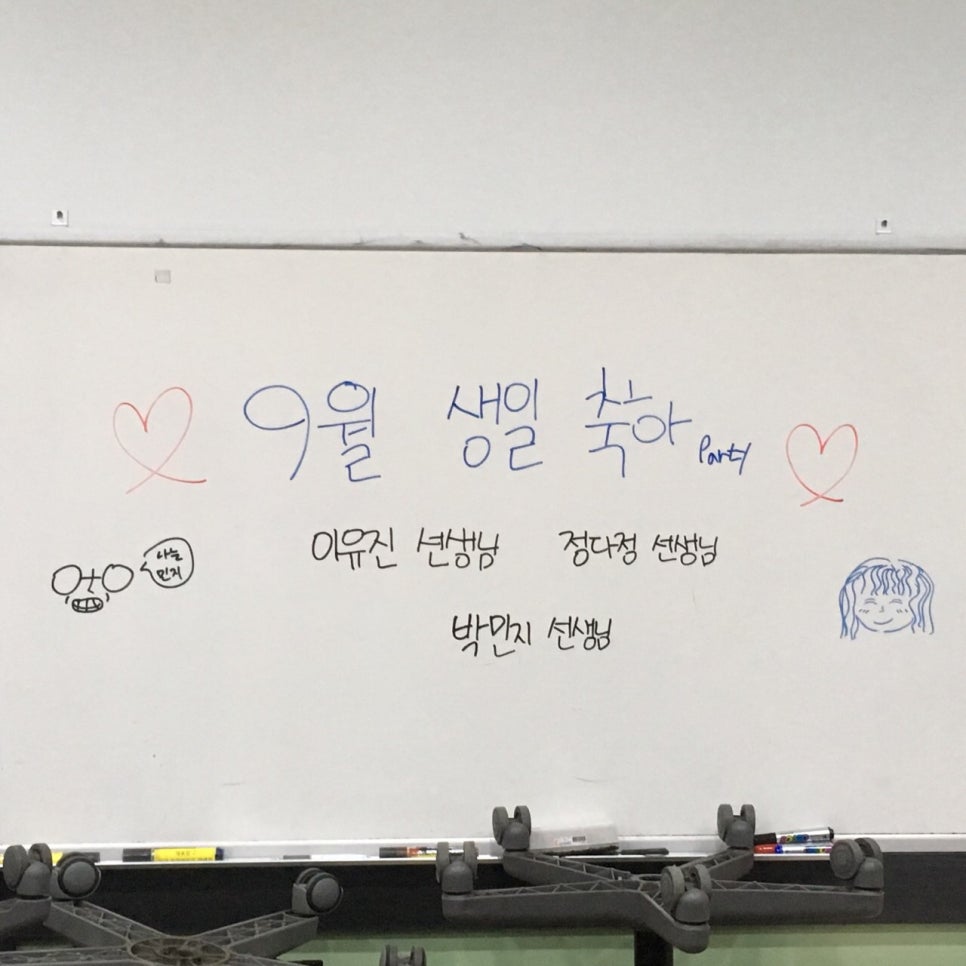 9월 생일 축하 Party
이유진 선생님 정다정 선생님
나는
민지
박민지 선생님